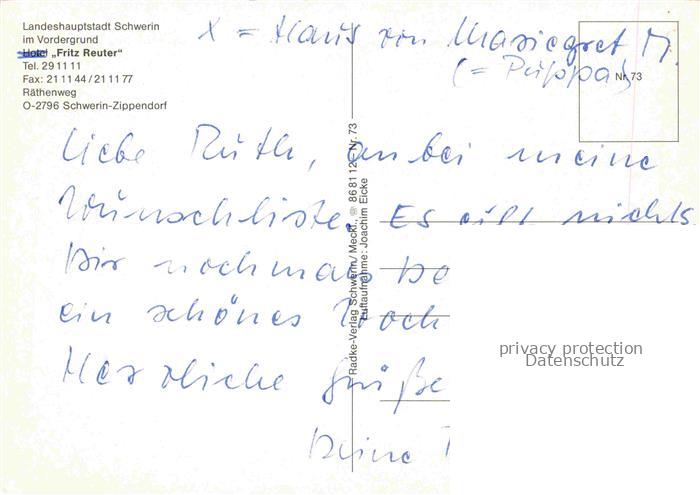 Landeshauptstadt Schwerin
im Vordergrund
Hotel „Fritz Reuter“
Tel. 29 11 11
Fax: 21 11 44 / 21 11 77
Räthenweg
O-2796 Schwerin-Zippendorf
X = Haus von Mariegret M.
(= Puppa)
Nr. 73
Liebe Ruth, anbei meine
Wunschliste. Es eilt nichts.
Dir nochmals
ein schönes
Herzliche Grüße
Deine
Radke-Verlag Schwerin/Meckl., ☏ 86 81 12 – Nr. 73
Luftaufnahme: Joachim Eicke
privacy protection
Datenschutz